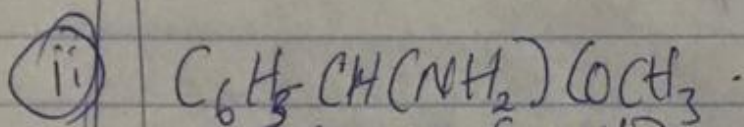 (ii) C₆H₅CH(NH₂)COCH₃.